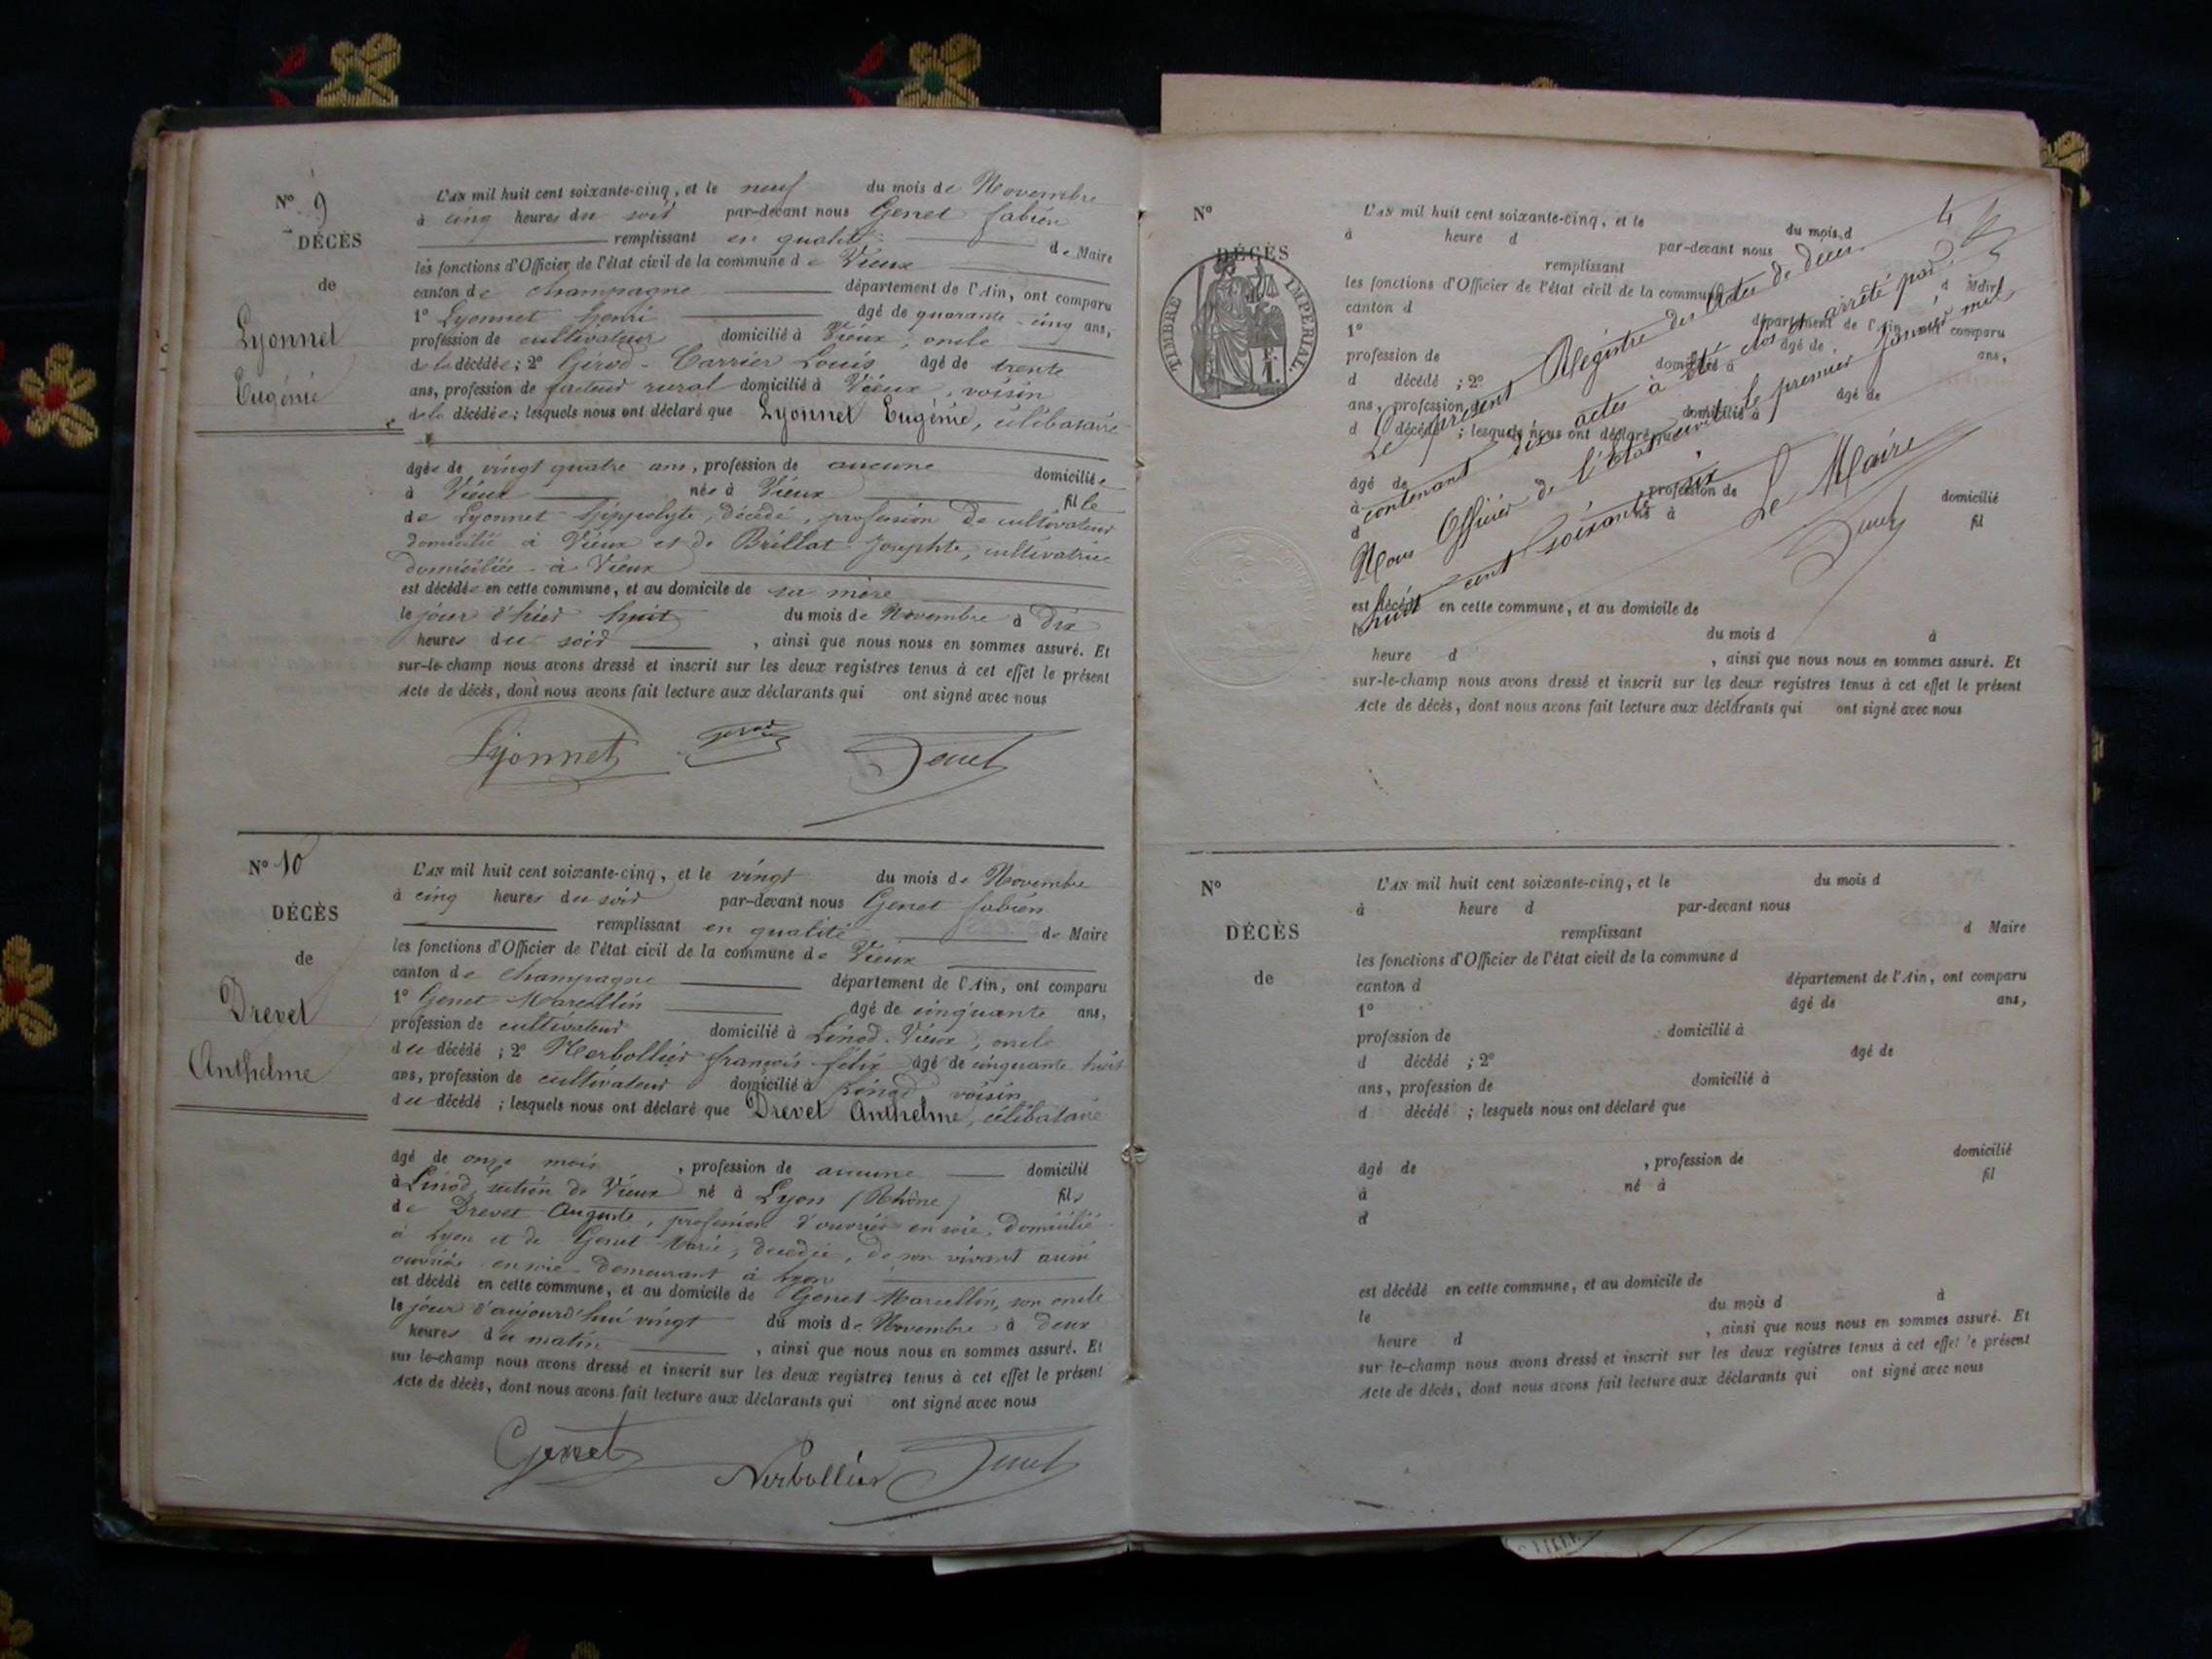 N° 9
DÉCÈS
de
Lyonnet
Eugénie
L'AN mil huit cent soixante-cinq, et le neuf du mois de Novembre
à cinq heures du soir par-devant nous Genet fabien
remplissant en qualité de Maire
les fonctions d'Officier de l'état civil de la commune de Vieux
canton de champagne département de l'Ain, ont comparu
1° Lyonnet henri âgé de quarante-cinq ans,
profession de cultivateur domicilié à Vieux, oncle
de la décédée; 2° Girod-Carrier Louis âgé de trente
ans, profession de facteur rural domicilié à Vieux, voisin
de la décédée; lesquels nous ont déclaré que Lyonnet Eugénie, célibataire
âgée de vingt quatre ans, profession de aucune domiciliée
à Vieux née à Vieux fille
de Lyonnet hippolyte, décédé, profession de cultivateur
domicilié à Vieux et de Brillat Josephte, cultivatrice
domiciliée à Vieux
est décédée en cette commune, et au domicile de sa mère
le jour d'hier huit du mois de Novembre à dix
heures du soir, ainsi que nous nous en sommes assuré. Et
sur-le-champ nous avons dressé et inscrit sur les deux registres tenus à cet effet le présent
Acte de décès, dont nous avons fait lecture aux déclarants qui ont signé avec nous
Lyonnet Girod Genet
N° 10
DÉCÈS
de
Drevet
Anthelme
L'AN mil huit cent soixante-cinq, et le vingt du mois de Novembre
à cinq heures du soir par-devant nous Genet fabien
remplissant en qualité de Maire
les fonctions d'Officier de l'état civil de la commune de Vieux
canton de champagne département de l'Ain, ont comparu
1° Genet Marcellin âgé de cinquante ans,
profession de cultivateur domicilié à Linod-Vieux, oncle
du décédé; 2° Nerbollier françois félix âgé de cinquante huit
ans, profession de cultivateur domicilié à Linod voisin
du décédé; lesquels nous ont déclaré que Drevet Anthelme, célibataire
âgé de onze mois, profession de aucune domicilié
à Linod, section de Vieux né à Lyon (Rhône) fils
de Drevet Auguste, profession d'ouvrier en soie, domicilié
à Lyon et de Genet Marie, décédée, de son vivant aussi
ouvrière en soie demeurant à Lyon
est décédé en cette commune, et au domicile de Genet Marcellin, son oncle
le jour d'aujourd'hui vingt du mois de Novembre à deux
heures du matin, ainsi que nous nous en sommes assuré. Et
sur-le-champ nous avons dressé et inscrit sur les deux registres tenus à cet effet le présent
Acte de décès, dont nous avons fait lecture aux déclarants qui ont signé avec nous
Genet Nerbollier Genet
N°
DÉCÈS
TIMBRE IMPÉRIAL.
L'AN mil huit cent soixante-cinq, et le du mois d
à heure d par-devant nous
remplissant d Maire
les fonctions d'Officier de l'état civil de la commune d
canton d département de l'Ain, ont comparu
1° âgé de ans,
profession de domicilié à
d décédé ; 2° âgé de
ans, profession de domicilié à
d décédé ; lesquels nous ont déclaré que
âgé de , profession de domicilié
à né à fil
d
est décédé en cette commune, et au domicile de
le du mois d à
heure d , ainsi que nous nous en sommes assuré. Et
sur-le-champ nous avons dressé et inscrit sur les deux registres tenus à cet effet le présent
Acte de décès, dont nous avons fait lecture aux déclarants qui ont signé avec nous
4
Le présent Régistre des actes de décès
contenant dix actes à été clos et arrêté par
Nous Officier de l'état civil le premier Janvier mil
huit cent soixante six
Le Maire
Genet
N°
DÉCÈS
de
L'AN mil huit cent soixante-cinq, et le du mois d
à heure d par-devant nous
remplissant d Maire
les fonctions d'Officier de l'état civil de la commune d
canton d département de l'Ain, ont comparu
1° âgé de ans,
profession de domicilié à
d décédé ; 2° âgé de
ans, profession de domicilié à
d décédé ; lesquels nous ont déclaré que
âgé de , profession de domicilié
à né à fil
d
est décédé en cette commune, et au domicile de
le du mois d à
heure d , ainsi que nous nous en sommes assuré. Et
sur-le-champ nous avons dressé et inscrit sur les deux registres tenus à cet effet le présent
Acte de décès, dont nous avons fait lecture aux déclarants qui ont signé avec nous